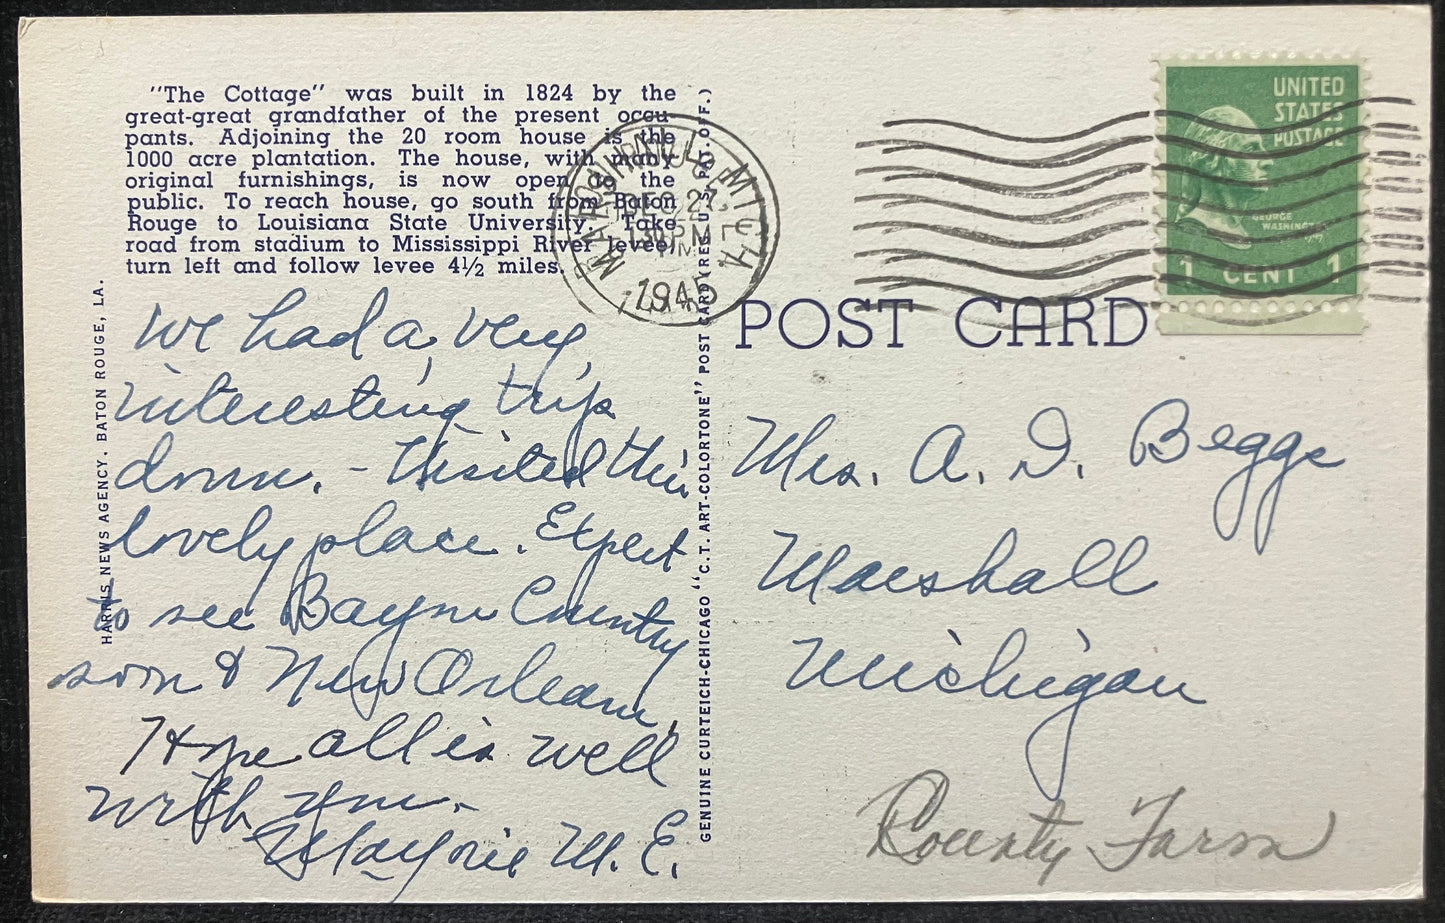 "The Cottage" was built in 1824 by the
great-great grandfather of the present occu
pants. Adjoining the 20 room house is the
1000 acre plantation. The house, with many
original furnishings, is now open to the
public. To reach house, go south from Baton
Rouge to Louisiana State University. Take
road from stadium to Mississippi River levee,
turn left and follow levee 4½ miles.
We had a very
interesting trip
down. - Visited this
lovely place. Expect
to see Bayou Country
soon & New Orleans.
Hope all is well
with you.
Marjorie M. E.
HARRIS NEWS AGENCY. BATON ROUGE, LA.
GENUINE CURTEICH-CHICAGO "C.T. ART-COLORTONE" POST CARD (REG. U.S. PAT. OFF.)
MICH
DEC 27
PM
1945
UNITED
STATES
POSTAGE
GEORGE
WASHINGTON
1 CENT 1
POST CARD
Mrs. A. D. Beggs
Marshall
Michigan
County Farm